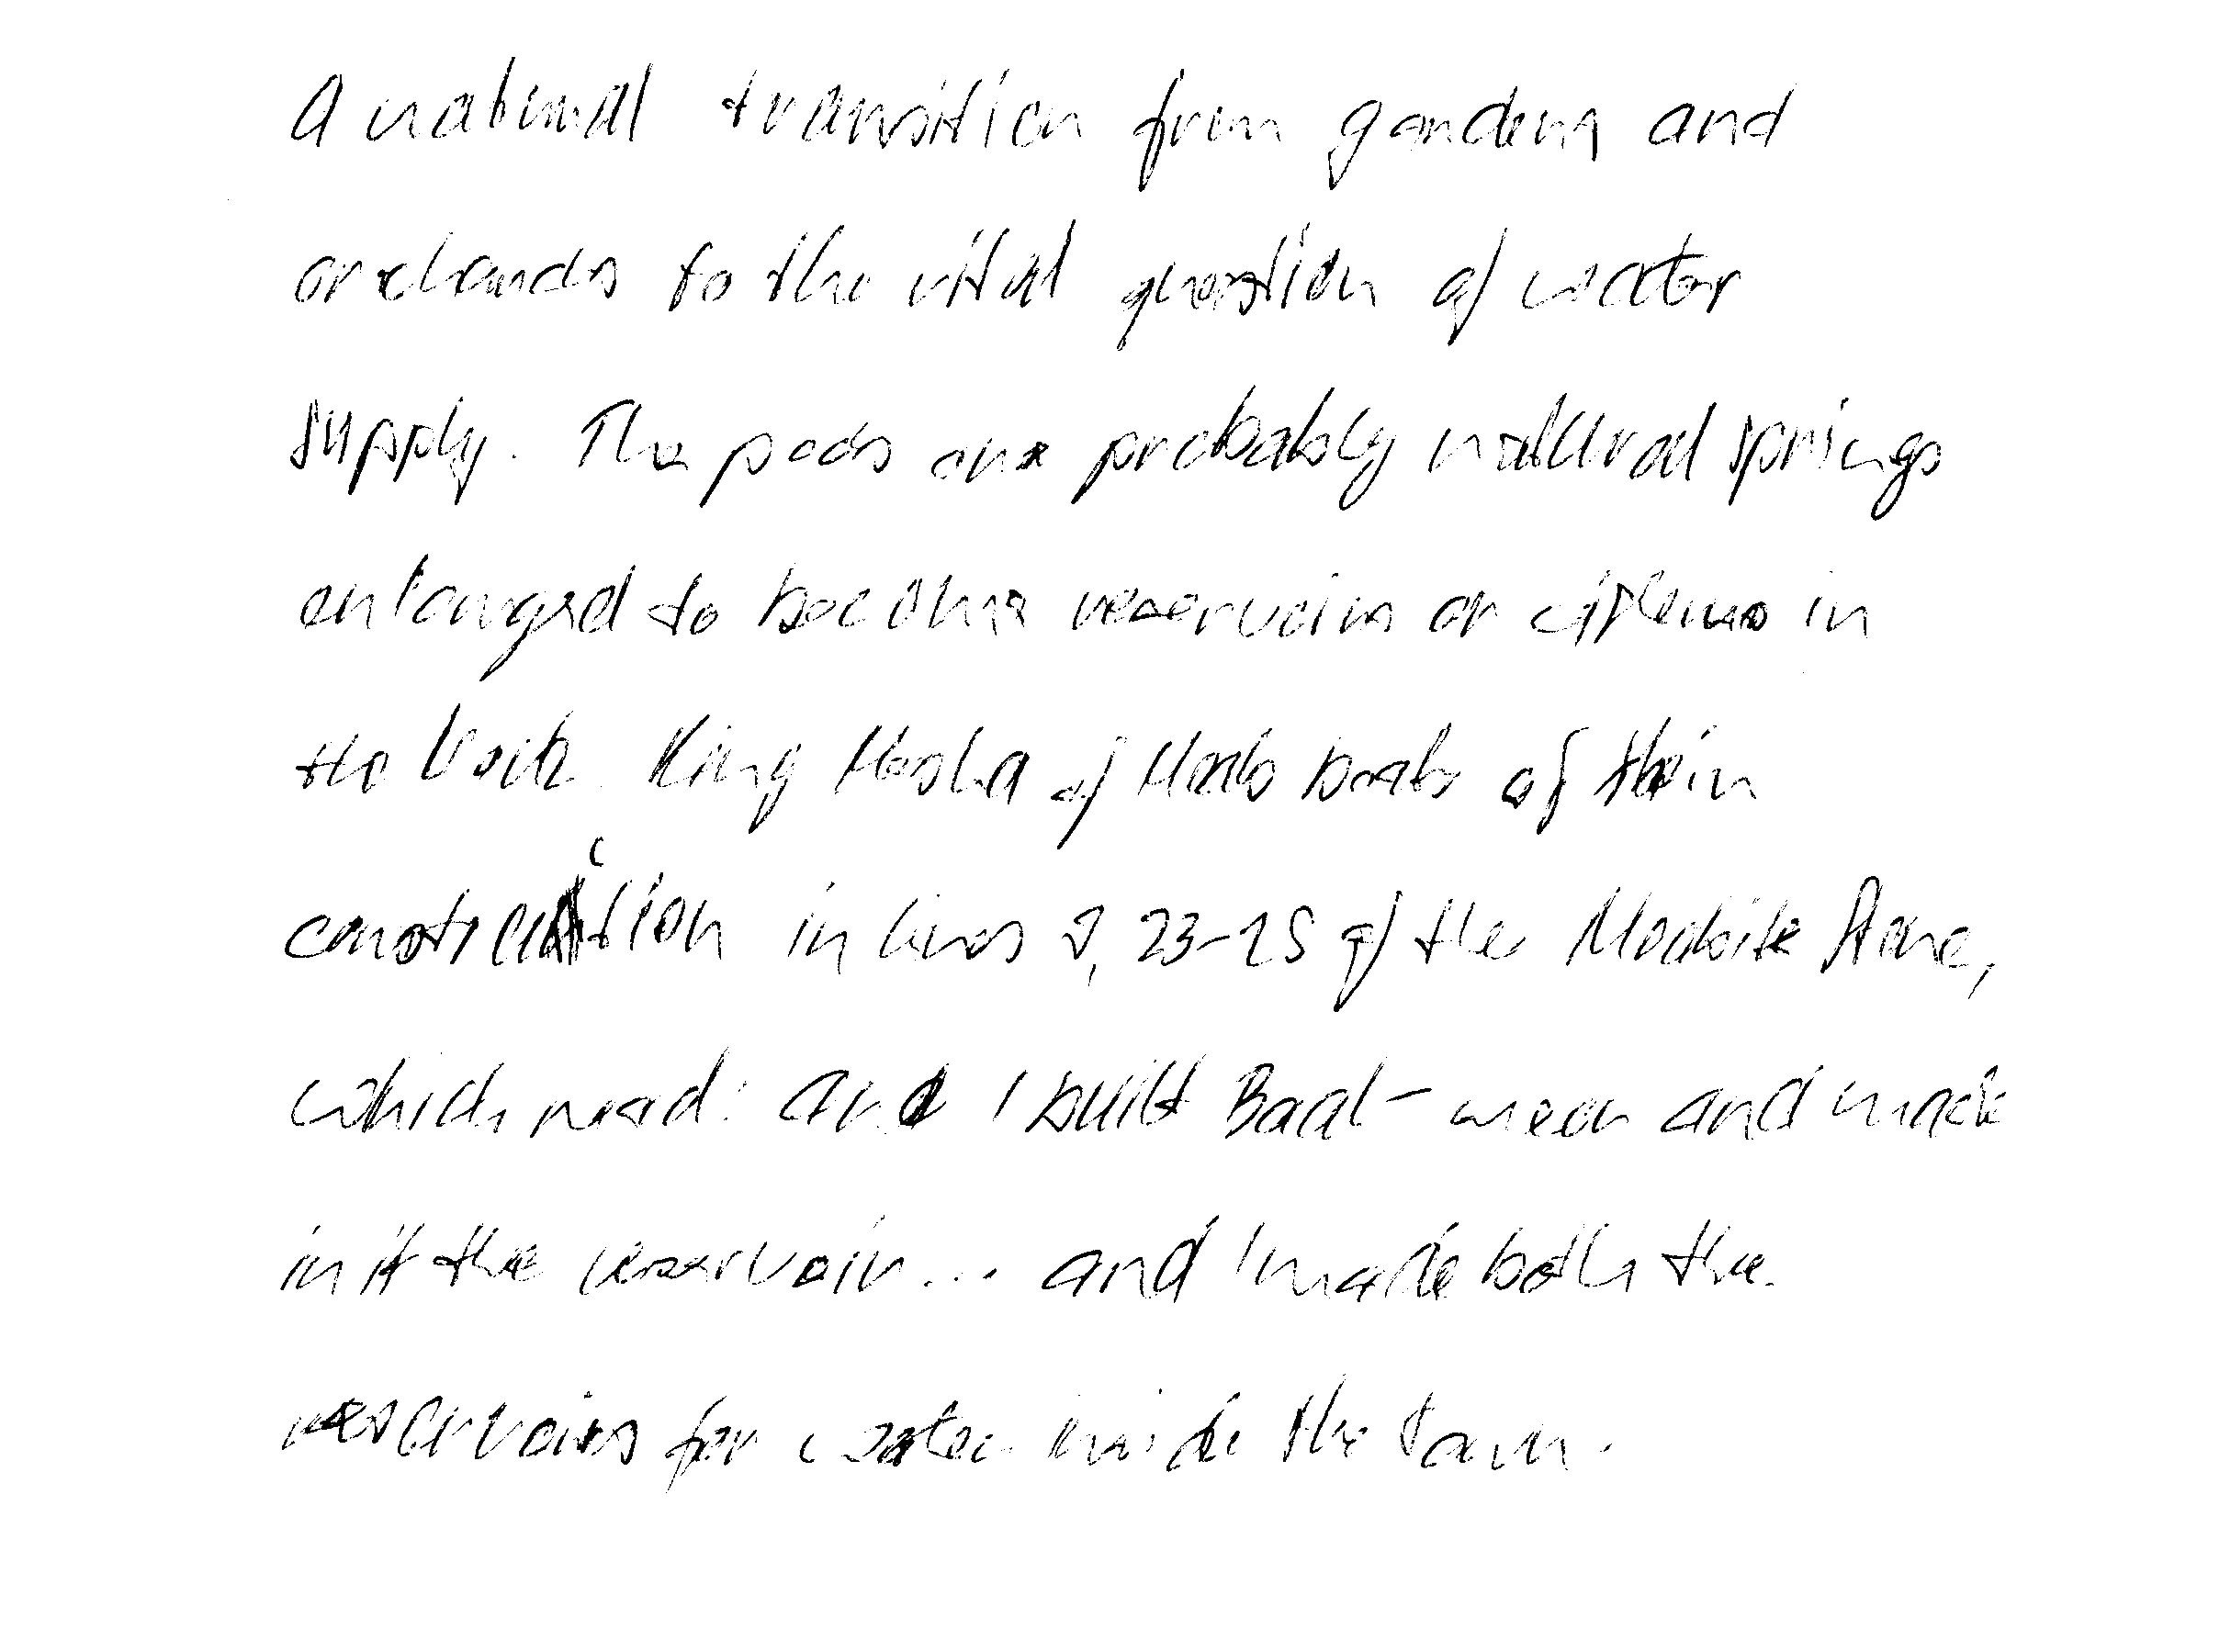 A natural transition from gardens and
orchards to the vital question of water
supply. The pools are probably natural springs
enlarged to become reservoirs or cisterns in
the rock. King Mesha of Moab boats of their
construction in lines 9, 23-25 of the Moabite Stone,
which read: And I built Baal-meon and made
in it the reservoir... and I made both the
reservoirs for water inside the town.